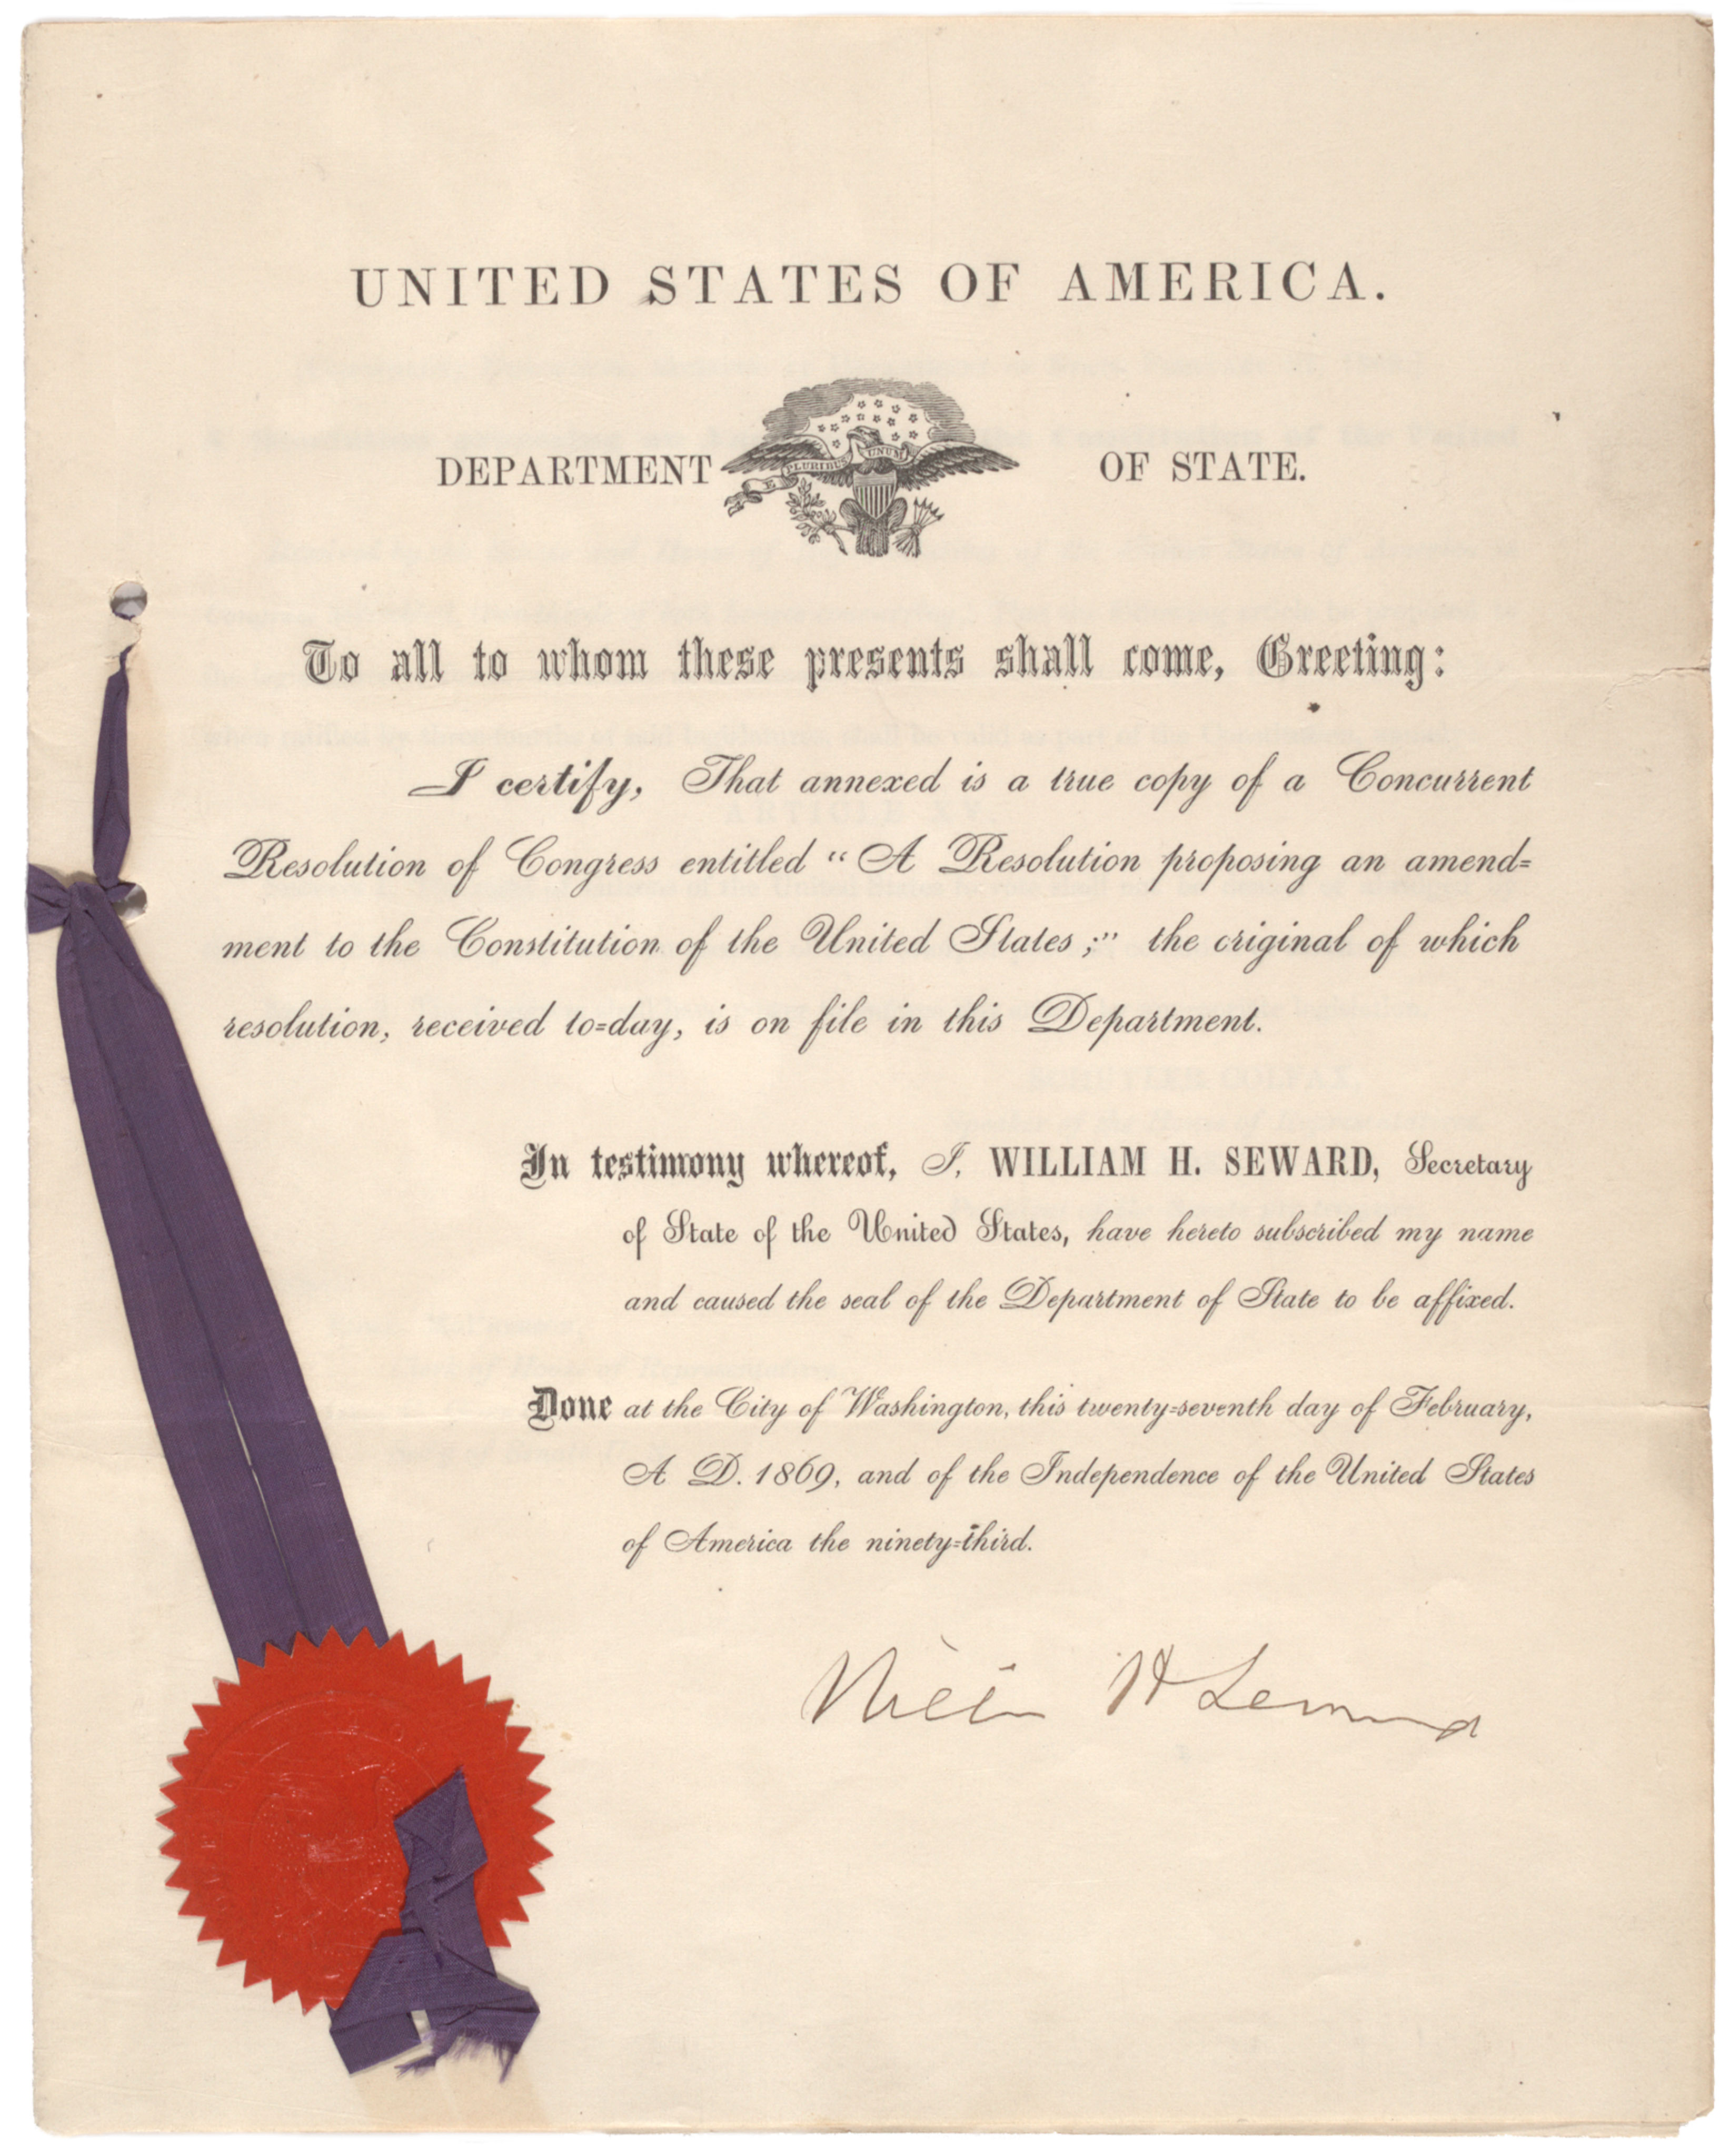 UNITED STATES OF AMERICA.
DEPARTMENT OF STATE.
E PLURIBUS UNUM
To all to whom these presents shall come, Greeting:
I certify, That annexed is a true copy of a Concurrent
Resolution of Congress entitled "A Resolution proposing an amend=
ment to the Constitution of the United States;" the original of which
resolution, received to=day, is on file in this Department.
In testimony whereof, I, WILLIAM H. SEWARD, Secretary
of State of the United States, have hereto subscribed my name
and caused the seal of the Department of State to be affixed.
Done at the City of Washington, this twenty=seventh day of February,
A D. 1869, and of the Independence of the United States
of America the ninety=third.
William H Seward